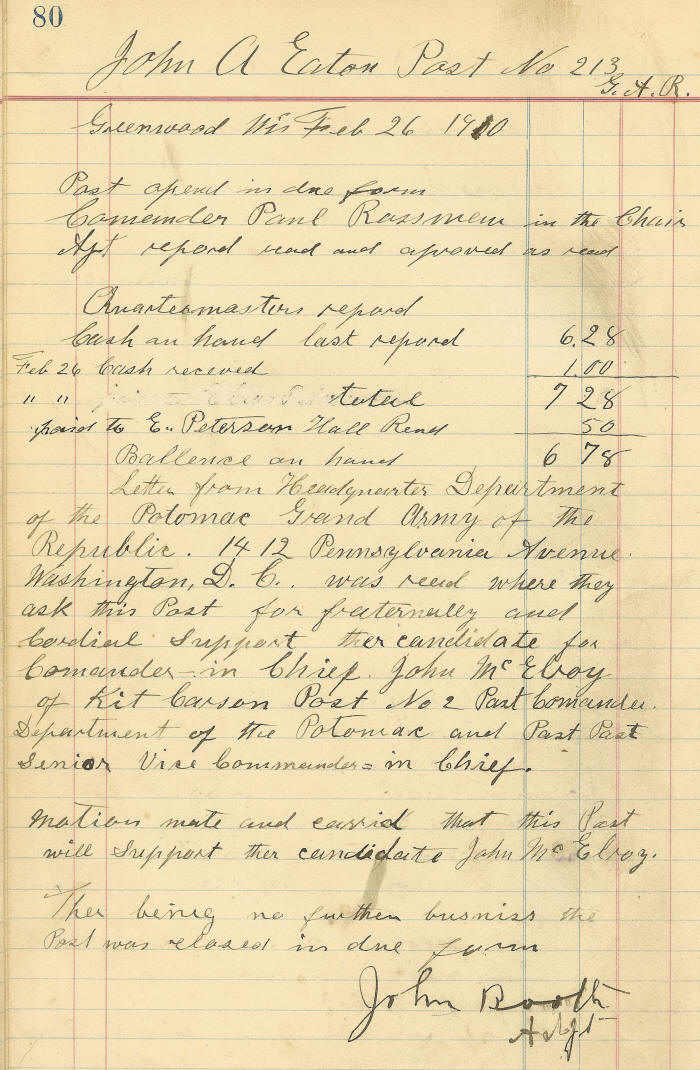 80
John A Eaton Post No 213
G. A. R.
Greenwood Wis Feb 26 1910
Post opend in due form
Comender Paul Rossmen in the Chair
Ajt repord read and aproved as read
Quartermasters repord
Cash on hand last repord 6.28
Feb 26 Cash receved 1.00
" " totel 7 28
paid to E. Peterson Hall Rend 50
Ballence on hand 6 78
Letter from Headquarter Department
of the Potomac Grand Army of the
Republic. 1412 Pennsylvania Avenue.
Washington, D. C.. was read where they
ask this Post for fraternally and
Cordial Support ther candidate for
Comander-in Chief. John McElroy
of Kit Carson Post No 2 Past Comander.
Department of the Potomac and Past Past
Senior Vice Commander= in Chief.
Motion mate and carrid that this Post
will Support ther candidate John McElroy.
Ther being no further busniss the
Post was closed in due form
John Booth
Adjt